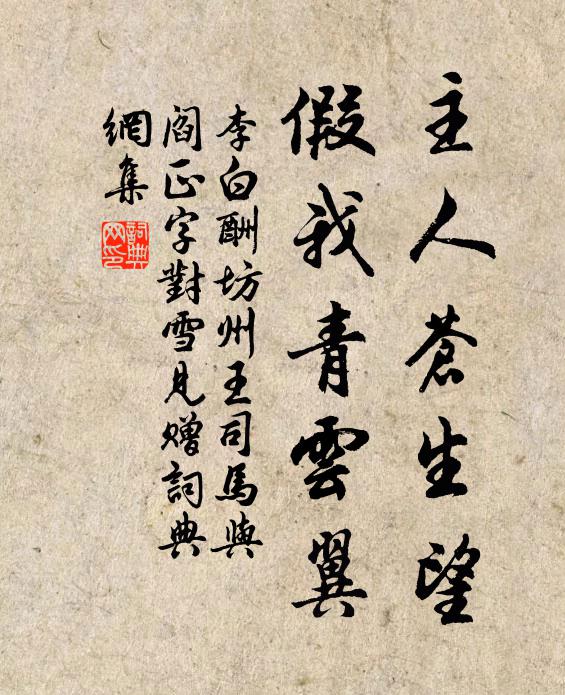 主人蒼生望
假我青雲翼
李白酬坊州王司馬與
閻正字對雪見贈詞典
網集
詞典
网印